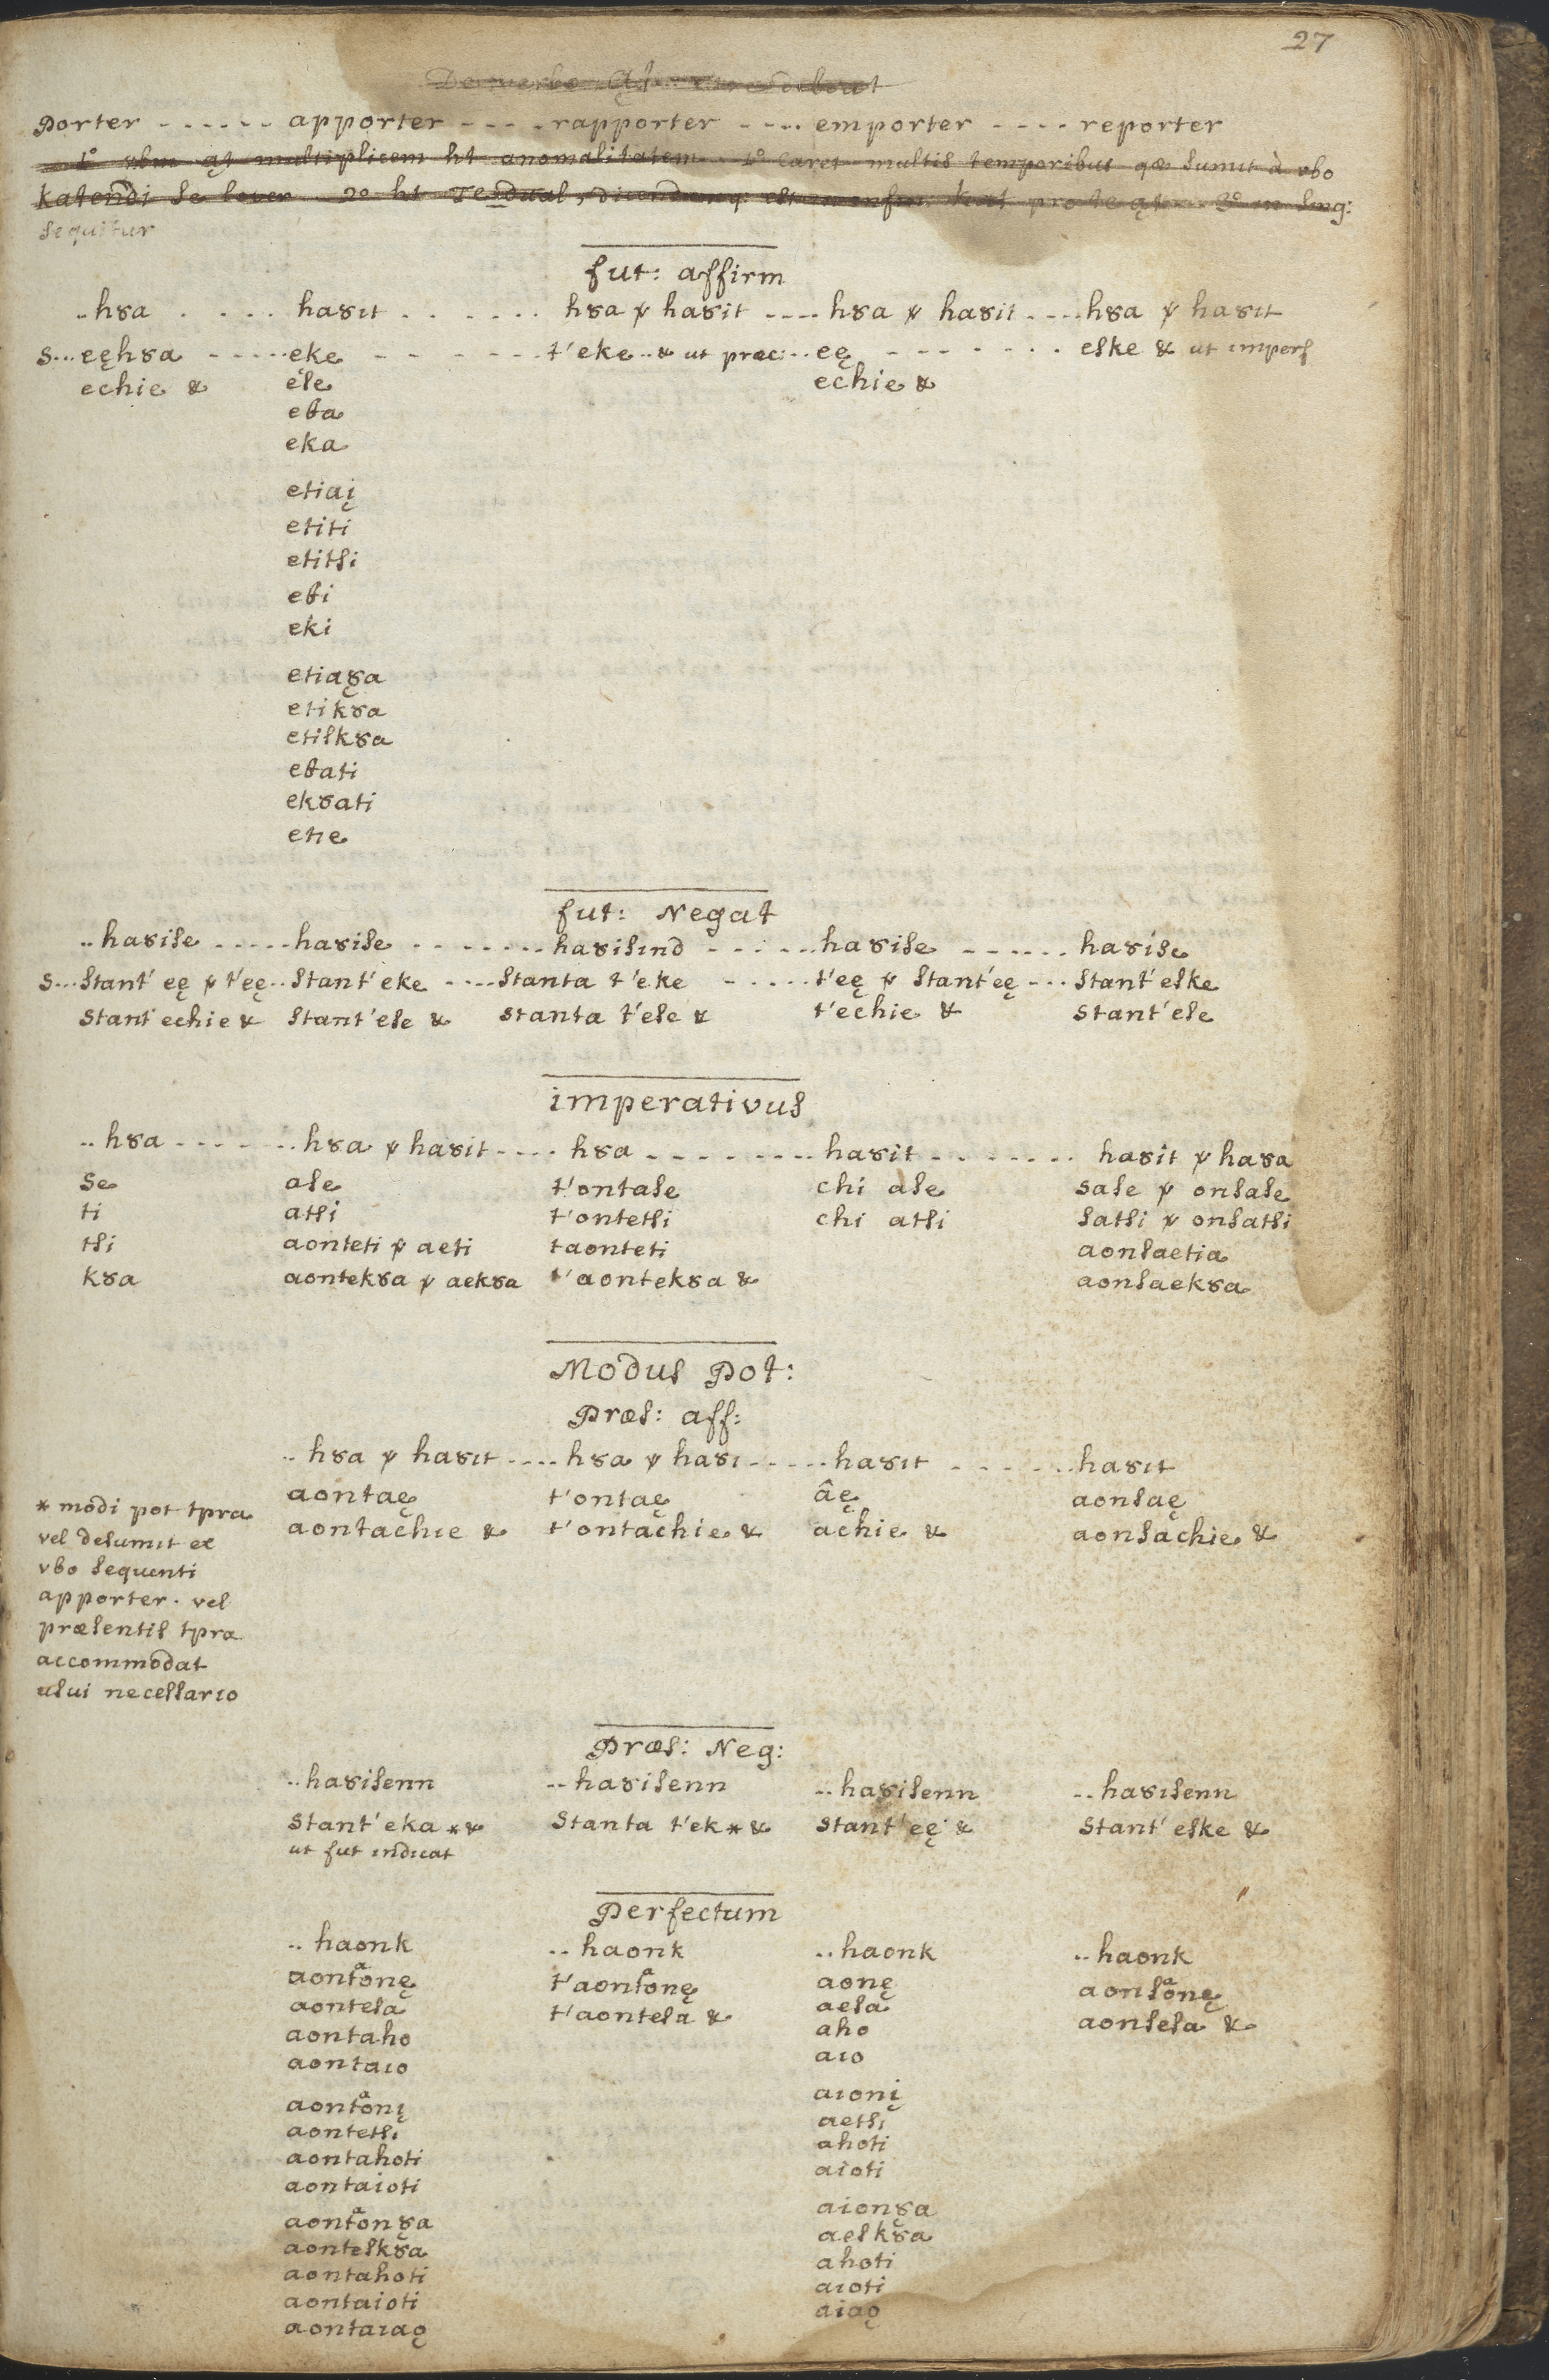 27
Porter ------ apporter ---- rapporter ---- emporter ---- reporter
multiplicem ht anomalitatem 1º caret multis temporibus qæ sumit à vbo
Katendi se lever 2º ht
sequitur
fut: affirm
..hȣa . . . . haȣit . . . . . . hȣa ꝟ haȣit ---- hȣa ꝟ haȣit ---- hȣa ꝟ haȣit
S... eęhȣa ----- eke ------- t'eke .. & ut præc: .. eę ------- eske & ut imperf
echie & ese echie &
eȣa
eka
etiaį
etiti
etitsi
eȣi
eki
etiaȣ̨a
etikȣa
etiskȣa
eȣati
ekȣati
etie
fut: Negat
..haȣise ----- haȣise ------- haȣisind ------ haȣise ------ haȣise
S... stant' eę ꝟ t'eę .. stant'eke ---- stanta t'eke ----- t'eę ꝟ stant'eę --- stant'eske
stant'echie & stant'ese & stanta t'ese & t'echie & stant'ese
imperativus
..hȣa ------ ..hȣa ꝟ haȣit ---- hȣa -------- haȣit ------- haȣit ꝟ haȣa
se ase t'ontase chi ase sase ꝟ onsase
ti atsi t'ontetsi chi atsi satsi ꝟ onsatsi
tsi aonteti ꝟ aeti taonteti aonsaetia
kȣa aontekȣa ꝟ aekȣa t'aontekȣa & aonsaekȣa
Modus Pot:
Præs: aff:
..hȣa ꝟ haȣit ---- hȣa ꝟ haȣi ----- haȣit ------ haȣit
aontaę t'ontaę âę aonsaę
aontachie & t'ontachie & achie & aonsachie &
* modi pot tpra
vel desumit ex
vbo sequenti
apporter. vel
præsentis tpra
accommodat
usui necessario
Præs: Neg:
..haȣisenn --haȣisenn ..haȣisenn --haȣisenn
stant'eka *& stanta t'ek *& stant'eę & stant'eske &
ut fut indicat
Perfectum
..haonk --haonk ..haonk --haonk
aontaonę t'aontaonę aonę aonsaonę
aontesa t'aontesa & aesa aonsesa &
aontaho aho
aontaio aio
aontaonį aionį
aontetsi aetsi
aontahoti ahoti
aontaioti aioti
aontaonȣ̨a aionȣ̨a
aonteskȣa aeskȣa
aontahoti ahoti
aontaioti aioti
aontaiaǫ aiaǫ